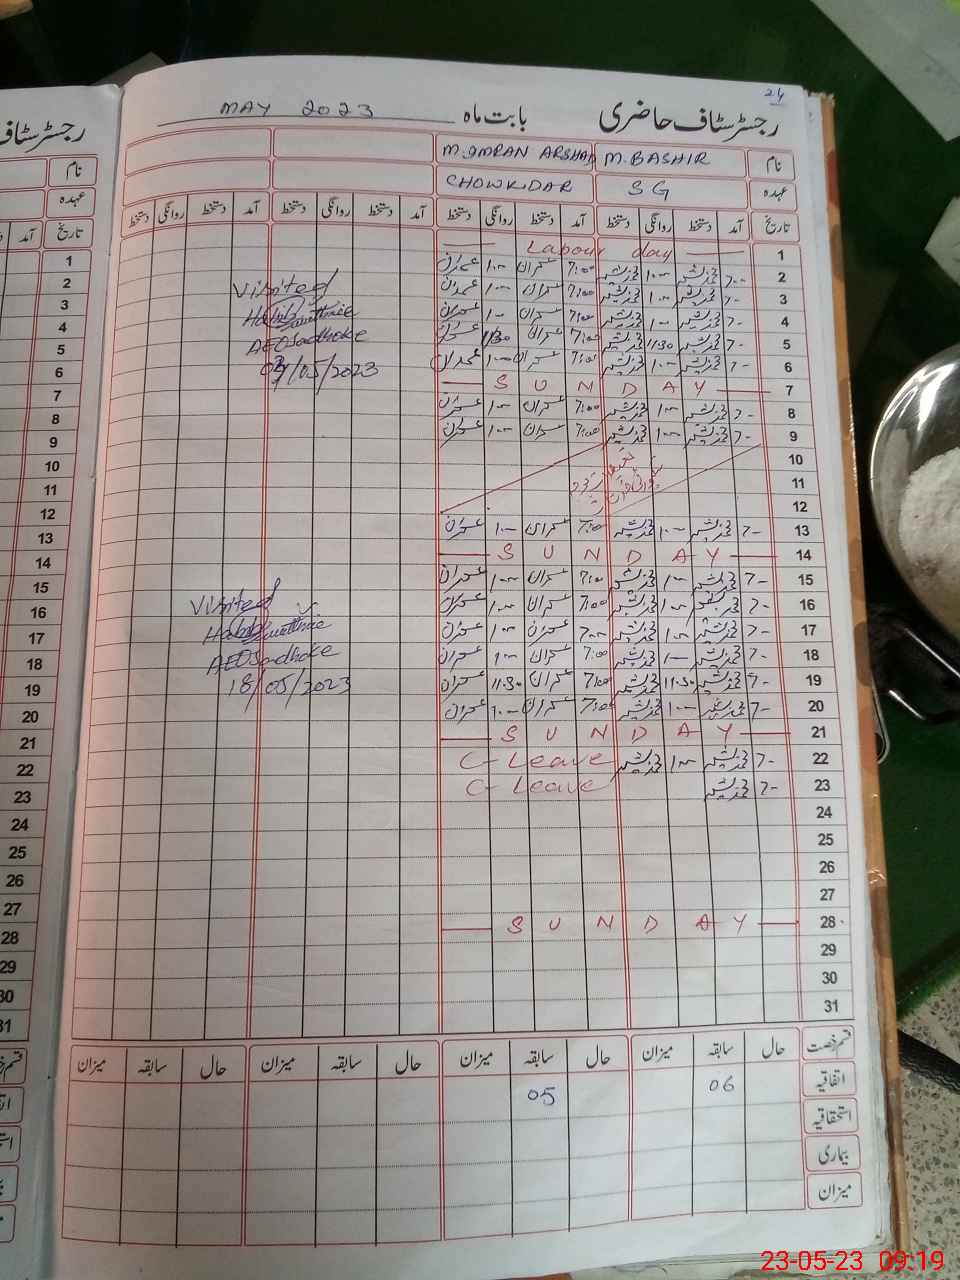 24
رجسٹر سٹاف حاضری بابت ماہ MAY 2023
نام M. BASHIR M. IMRAN ARSHAD
عہدہ SG CHOWKIDAR
تاریخ آمد دستخط روانگی دستخط آمد دستخط روانگی دستخط آمد دستخط روانگی دستخط آمد دستخط روانگی دستخط
1 Labour day
2 7-00 محمد بشیر 1-00 محمد بشیر 7:00 عمران 1-00 عمران
3 7- محمد بشیر 1-00 محمد بشیر 7:00 عمران 1-00 عمران
4 7- محمد بشیر 1-00 محمد بشیر 7:00 عمران 1-00 عمران
5 7- محمد بشیر 11:30 محمد بشیر 7:00 عمران 11:30 عمران
6 7- محمد بشیر 1-00 محمد بشیر 7:00 عمران 1-00 عمران
7 SUNDAY
8 7- محمد بشیر 1-00 محمد بشیر 7:00 عمران 1-00 عمران
9 7- محمد بشیر 1-00 محمد بشیر 7:00 عمران 1-00 عمران
10
11
12
13 7- محمد بشیر 1-00 محمد بشیر 7:00 عمران 1-00 عمران
14 SUNDAY
15 7- محمد بشیر 1-00 محمد بشیر 7:00 عمران 1-00 عمران
16 7- محمد بشیر 1-00 محمد بشیر 7:00 عمران 1-00 عمران
17 7- محمد بشیر 1-00 محمد بشیر 7-00 عمران 1-00 عمران
18 7- محمد بشیر 1-00 محمد بشیر 7:00 عمران 1-00 عمران
19 7- محمد بشیر 11:30 محمد بشیر 7:00 عمران 11:30 عمران
20 7- محمد بشیر 1-00 محمد بشیر 7:00 عمران 1-00 عمران
21 SUNDAY
22 7- محمد بشیر 1-00 محمد بشیر C-Leave
23 7- محمد بشیر C-Leave
24
25
26
27
28 SUNDAY
29
30
31
Visited
AEO Sadhoke
04/05/2023
Visited
AEO Sadhoke
18/05/2023
قسم رخصت حال سابقہ میزان حال سابقہ میزان حال سابقہ میزان حال سابقہ میزان
اتفاقیہ 06 05
استحقاقیہ
بیماری
میزان
رجسٹر سٹاف
نام
عہدہ
تاریخ آمد
1
2
3
4
5
6
7
8
9
10
11
12
13
14
15
16
17
18
19
20
21
22
23
24
25
26
27
28
29
30
31
23-05-23 09:19